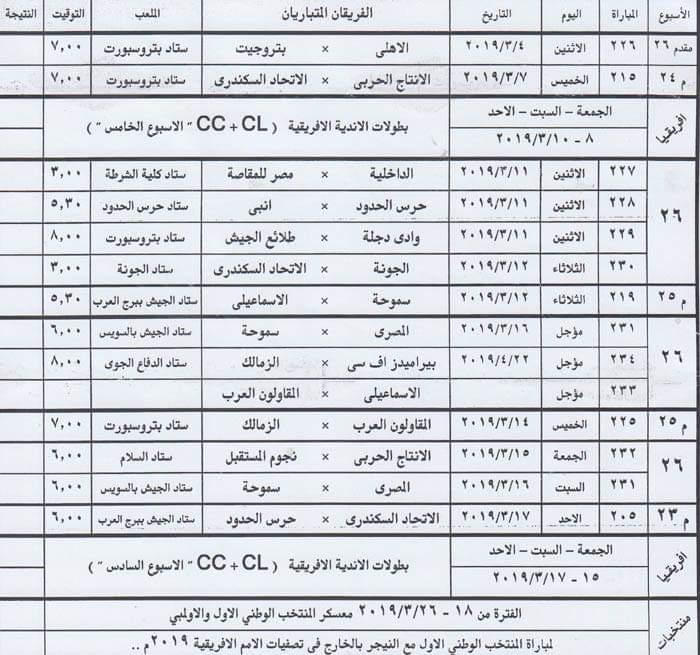 الأسبوع المباراة اليوم التاريخ الفريقان المتباريان الملعب التوقيت النتيجة
مقدم ٢٦ ٢٢٦ الاثنين ٢٠١٩/٣/٤ الاهلى × بتروجيت ستاد بتروسبورت ٧,٠٠
م ٢٤ ٢١٥ الخميس ٢٠١٩/٣/٧ الانتاج الحربى × الاتحاد السكندرى ستاد بتروسبورت ٧,٠٠
افريقيا الجمعة – السبت – الاحد
٨ - ٢٠١٩/٣/١٠ بطولات الاندية الافريقية ( CC + CL " الاسبوع الخامس " )
٢٦
٢٢٧ الاثنين ٢٠١٩/٣/١١ الداخلية × مصر للمقاصة ستاد كلية الشرطة ٣,٠٠
٢٢٨ الاثنين ٢٠١٩/٣/١١ حرس الحدود × انبى ستاد حرس الحدود ٥,٣٠
٢٢٩ الاثنين ٢٠١٩/٣/١١ وادى دجلة × طلائع الجيش ستاد بتروسبورت ٨,٠٠
٢٣٠ الثلاثاء ٢٠١٩/٣/١٢ الجونة × الاتحاد السكندرى ستاد الجونة ٣,٠٠
م ٢٥ ٢١٩ الثلاثاء ٢٠١٩/٣/١٢ سموحة × الاسماعيلى ستاد الجيش ببرج العرب ٥,٣٠
٢٦
٢٣١ مؤجل ٢٠١٩/٣/١٦ المصرى × سموحة ستاد الجيش بالسويس ٦,٠٠
٢٣٤ مؤجل ٢٠١٩/٤/٢٢ بيراميدز اف سى × الزمالك ستاد الدفاع الجوى ٨,٠٠
٢٣٣ مؤجل الاسماعيلى × المقاولون العرب
م ٢٥ ٢٢٥ الخميس ٢٠١٩/٣/١٤ المقاولون العرب × الزمالك ستاد بتروسبورت ٧,٠٠
٢٦
٢٣٢ الجمعة ٢٠١٩/٣/١٥ الانتاج الحربى × نجوم المستقبل ستاد السلام ٦,٠٠
٢٣١ السبت ٢٠١٩/٣/١٦ المصرى × سموحة ستاد الجيش بالسويس ٦,٠٠
م ٢٣ ٢٠٥ الاحد ٢٠١٩/٣/١٧ الاتحاد السكندرى × حرس الحدود ستاد الجيش ببرج العرب ٦,٠٠
افريقيا الجمعة – السبت – الاحد
١٥ - ٢٠١٩/٣/١٧ بطولات الاندية الافريقية ( CC + CL " الاسبوع السادس " )
منتخبات
الفترة من ١٨ - ٢٠١٩/٣/٢٦ معسكر المنتخب الوطني الاول والاولمبي
لمباراة المنتخب الوطني الاول مع النيجر بالخارج فى تصفيات الامم الافريقية ٢٠١٩م ..